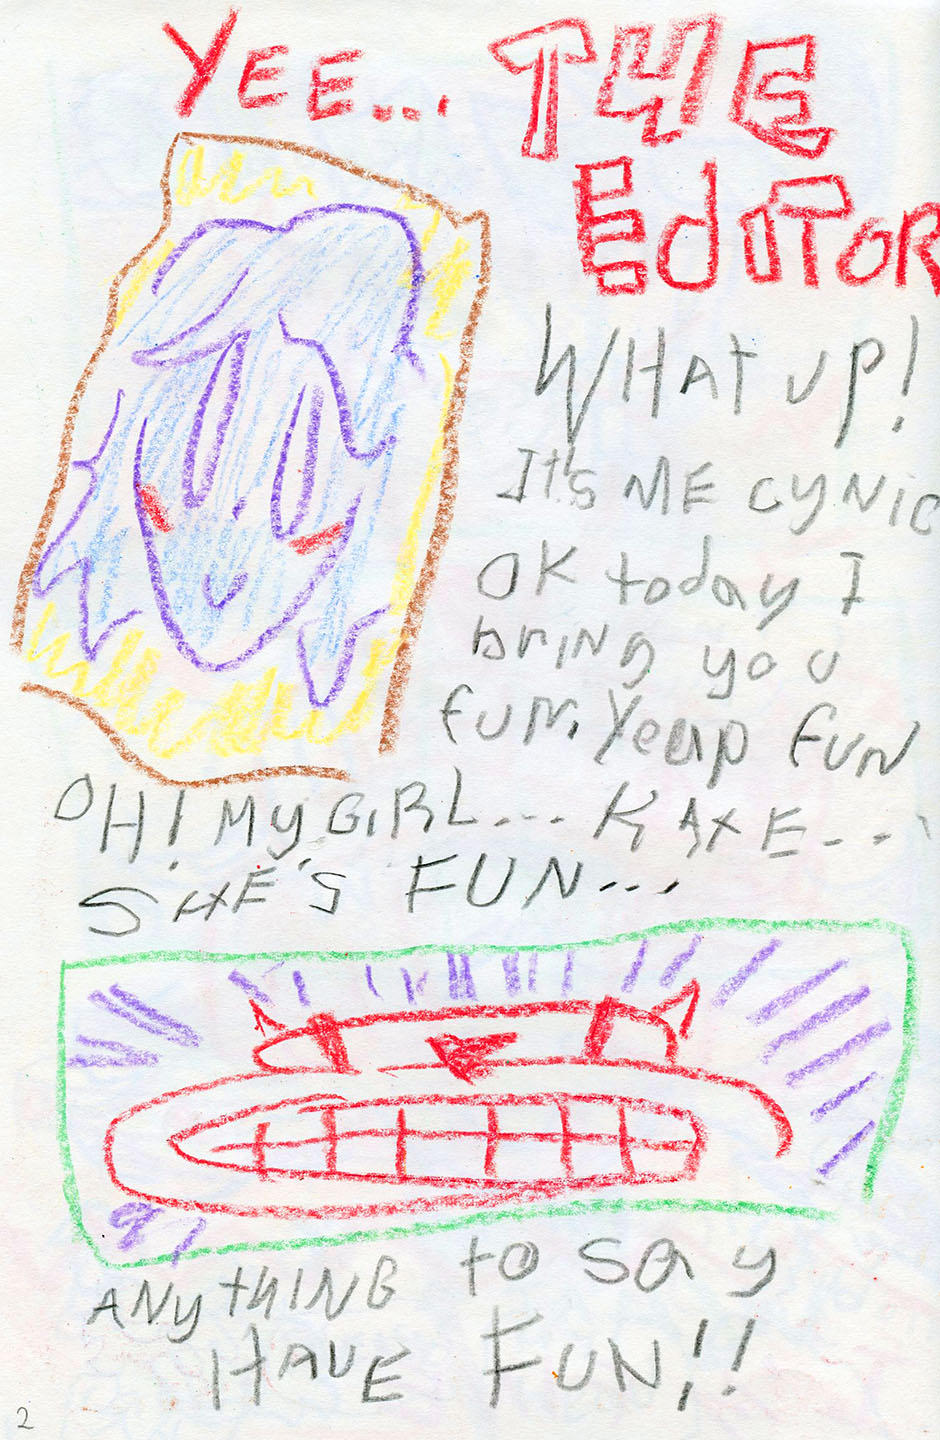 YEE... THE
EDITOR
WHAT UP!
It's ME CYNIC
OK today I
bring you
fun, Yeap fun
OH! MY GIRL... KAXE...
SHE'S FUN...
97
ANYTHING to say
HAVE FUN!!
2